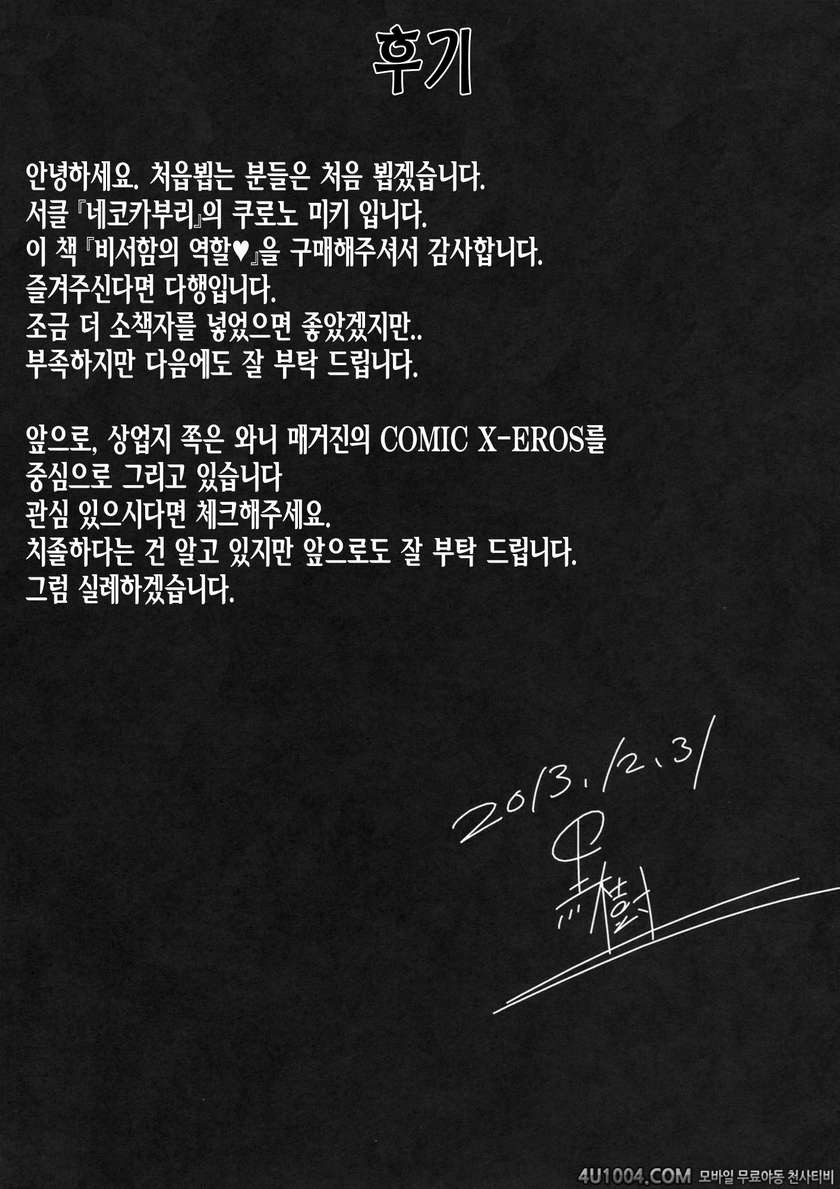 후기
안녕하세요. 처음뵙는 분들은 처음 뵙겠습니다.
서클 『네코카부리』의 쿠로노 미키 입니다.
이 책 『비서함의 역할♥』을 구매해주셔서 감사합니다.
즐겨주신다면 다행입니다.
조금 더 소책자를 넣었으면 좋았겠지만..
부족하지만 다음에도 잘 부탁 드립니다.
앞으로, 상업지 쪽은 와니 매거진의 COMIC X-EROS를
중심으로 그리고 있습니다
관심 있으시다면 체크해주세요.
치졸하다는 건 알고 있지만 앞으로도 잘 부탁 드립니다.
그럼 실례하겠습니다.
2013.12.31
黒樹
4U1004.COM 모바일 무료야동 천사티비